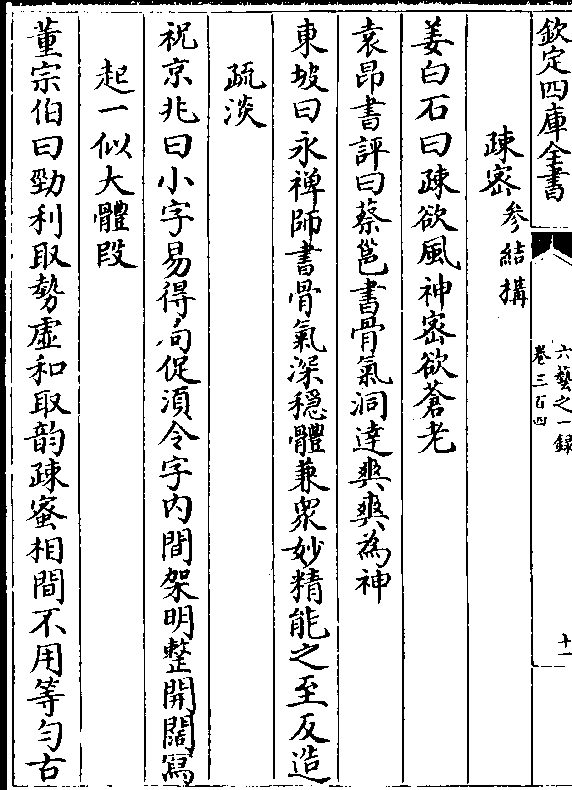 欽定四庫全書
六藝之一錄
卷三百四
十一
疎密參結搆
姜白石曰疎欲風神密欲蒼老
袁昂書評曰蔡邕書骨氣洞達爽爽為神
東坡曰永禪師書骨氣深穩體兼衆妙精能之至反造
疏淡
祝京兆曰小字易得局促湏令字内間架明整開闊寫
起一似大體段
董宗伯曰勁利取勢虛和取韵疎蜜相間不用等勻古